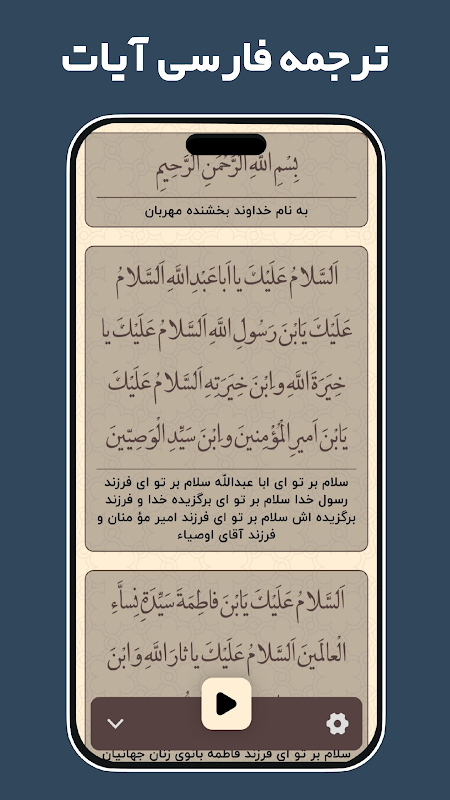 ترجمه فارسی آیات
بِسْمِ اللَّهِ الرَّحْمَنِ الرَّحِيمِ
به نام خداوند بخشنده مهربان
اَلسَّلامُ عَلَيْكَ يا اَبا عَبْدِاللَّهِ اَلسَّلامُ
عَلَيْكَ يَابْنَ رَسُولِ اللَّهِ اَلسَّلامُ عَلَيْكَ يا
خِيَرَةَ اللَّهِ وابْنَ خِيَرَتِهِ اَلسَّلامُ عَلَيْكَ
يَابْنَ اَميرِ الْمُؤْمِنينَ وابْنَ سَيِّدِ الْوَصِيّينَ
سلام بر تو ای ابا عبداللّه سلام بر تو ای فرزند
رسول خدا سلام بر تو ای برگزیده خدا و فرزند
برگزیده اش سلام بر تو ای فرزند امیر مؤ منان و
فرزند آقای اوصیاء
اَلسَّلامُ عَلَيْكَ يَابْنَ فاطِمَةَ سَيِّدَةِ نِساَّءِ
الْعالَمينَ اَلسَّلامُ عَلَيْكَ يا ثارَ اللَّهِ وابْنَ
سلام بر تو ای فرزند فاطمه بانوی زنان جهانیان